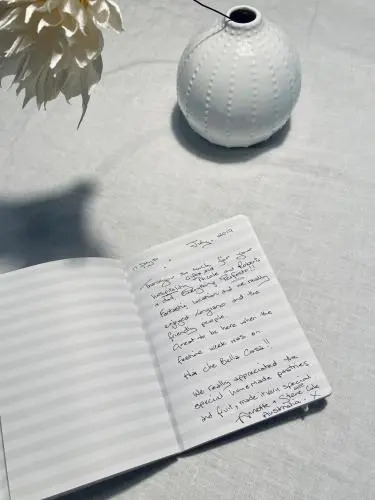 July, 2019
Thankyou so much for your
hospitality, Nicole and Roberto
Everything 'Perfecto'!!
Fantastic location and we really
enjoyed and the
friendly people.
Great to be here when the
festive week was on.
Che Bella Casa!!
We really appreciated the
special homemade pastries
and fruit, made it very special
Annette + Steve Cole
Australia. X